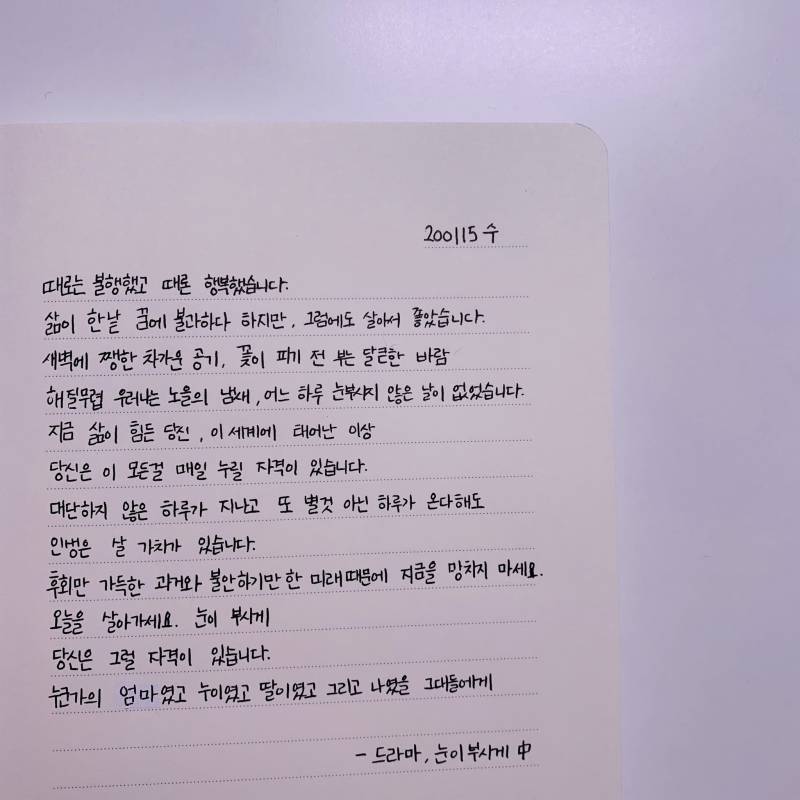 200115 수
때로는 불행했고 때론 행복했습니다.
삶이 한낱 꿈에 불과하다 하지만, 그럼에도 살아서 좋았습니다.
새벽에 쨍한 차가운 공기, 꽃이 피기 전 부는 달큰한 바람
해질무렵 우러나는 노을의 냄새, 어느 하루 눈부시지 않은 날이 없었습니다.
지금 삶이 힘든 당신, 이 세계에 태어난 이상
당신은 이 모든걸 매일 누릴 자격이 있습니다.
대단하지 않은 하루가 지나고 또 별것 아닌 하루가 온다해도
인생은 살 가치가 있습니다.
후회만 가득한 과거와 불안하기만 한 미래때문에 지금을 망치지 마세요.
오늘을 살아가세요. 눈이 부시게
당신은 그럴 자격이 있습니다.
누군가의 엄마였고 누이였고 딸이였고 그리고 나였을 그대들에게
- 드라마, 눈이부시게 中